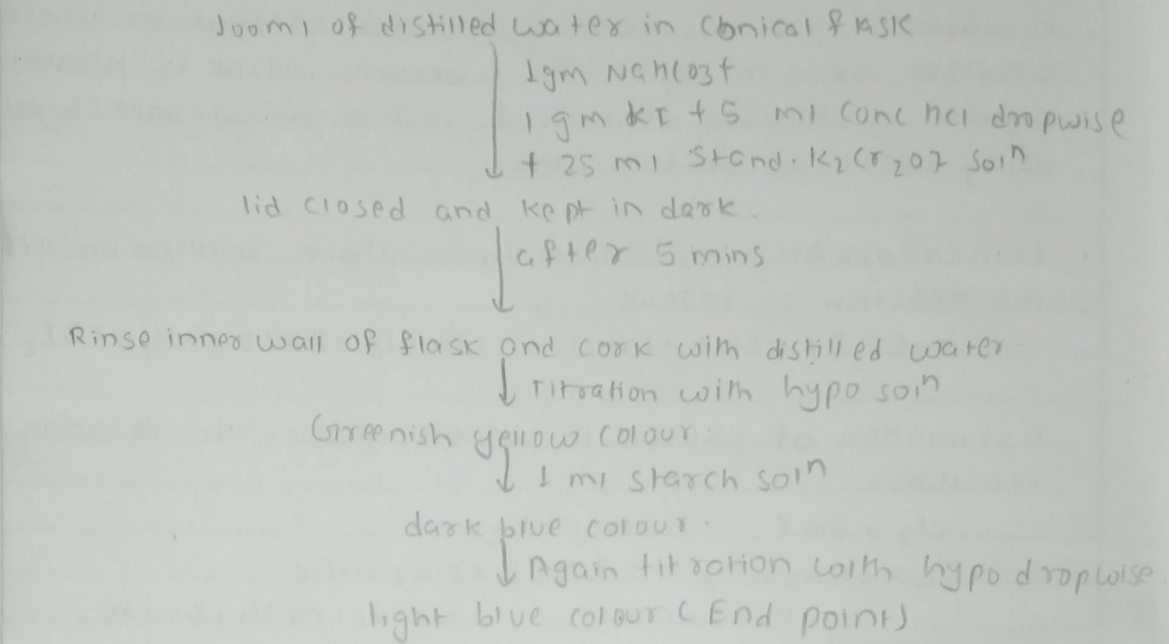 100ml of distilled water in Conical flask
1gm NaHCO3 +
1 gm KI + 5 ml Conc HCl dropwise
+ 25 ml Stand. K2Cr2O7 soln
lid closed and kept in dark.
after 5 mins
Rinse inner wall of flask and cork with distilled water
Titration with hypo soln
Greenish yellow colour.
1 ml starch soln
dark blue colour.
Again titration with hypo dropwise
light blue colour (End point)